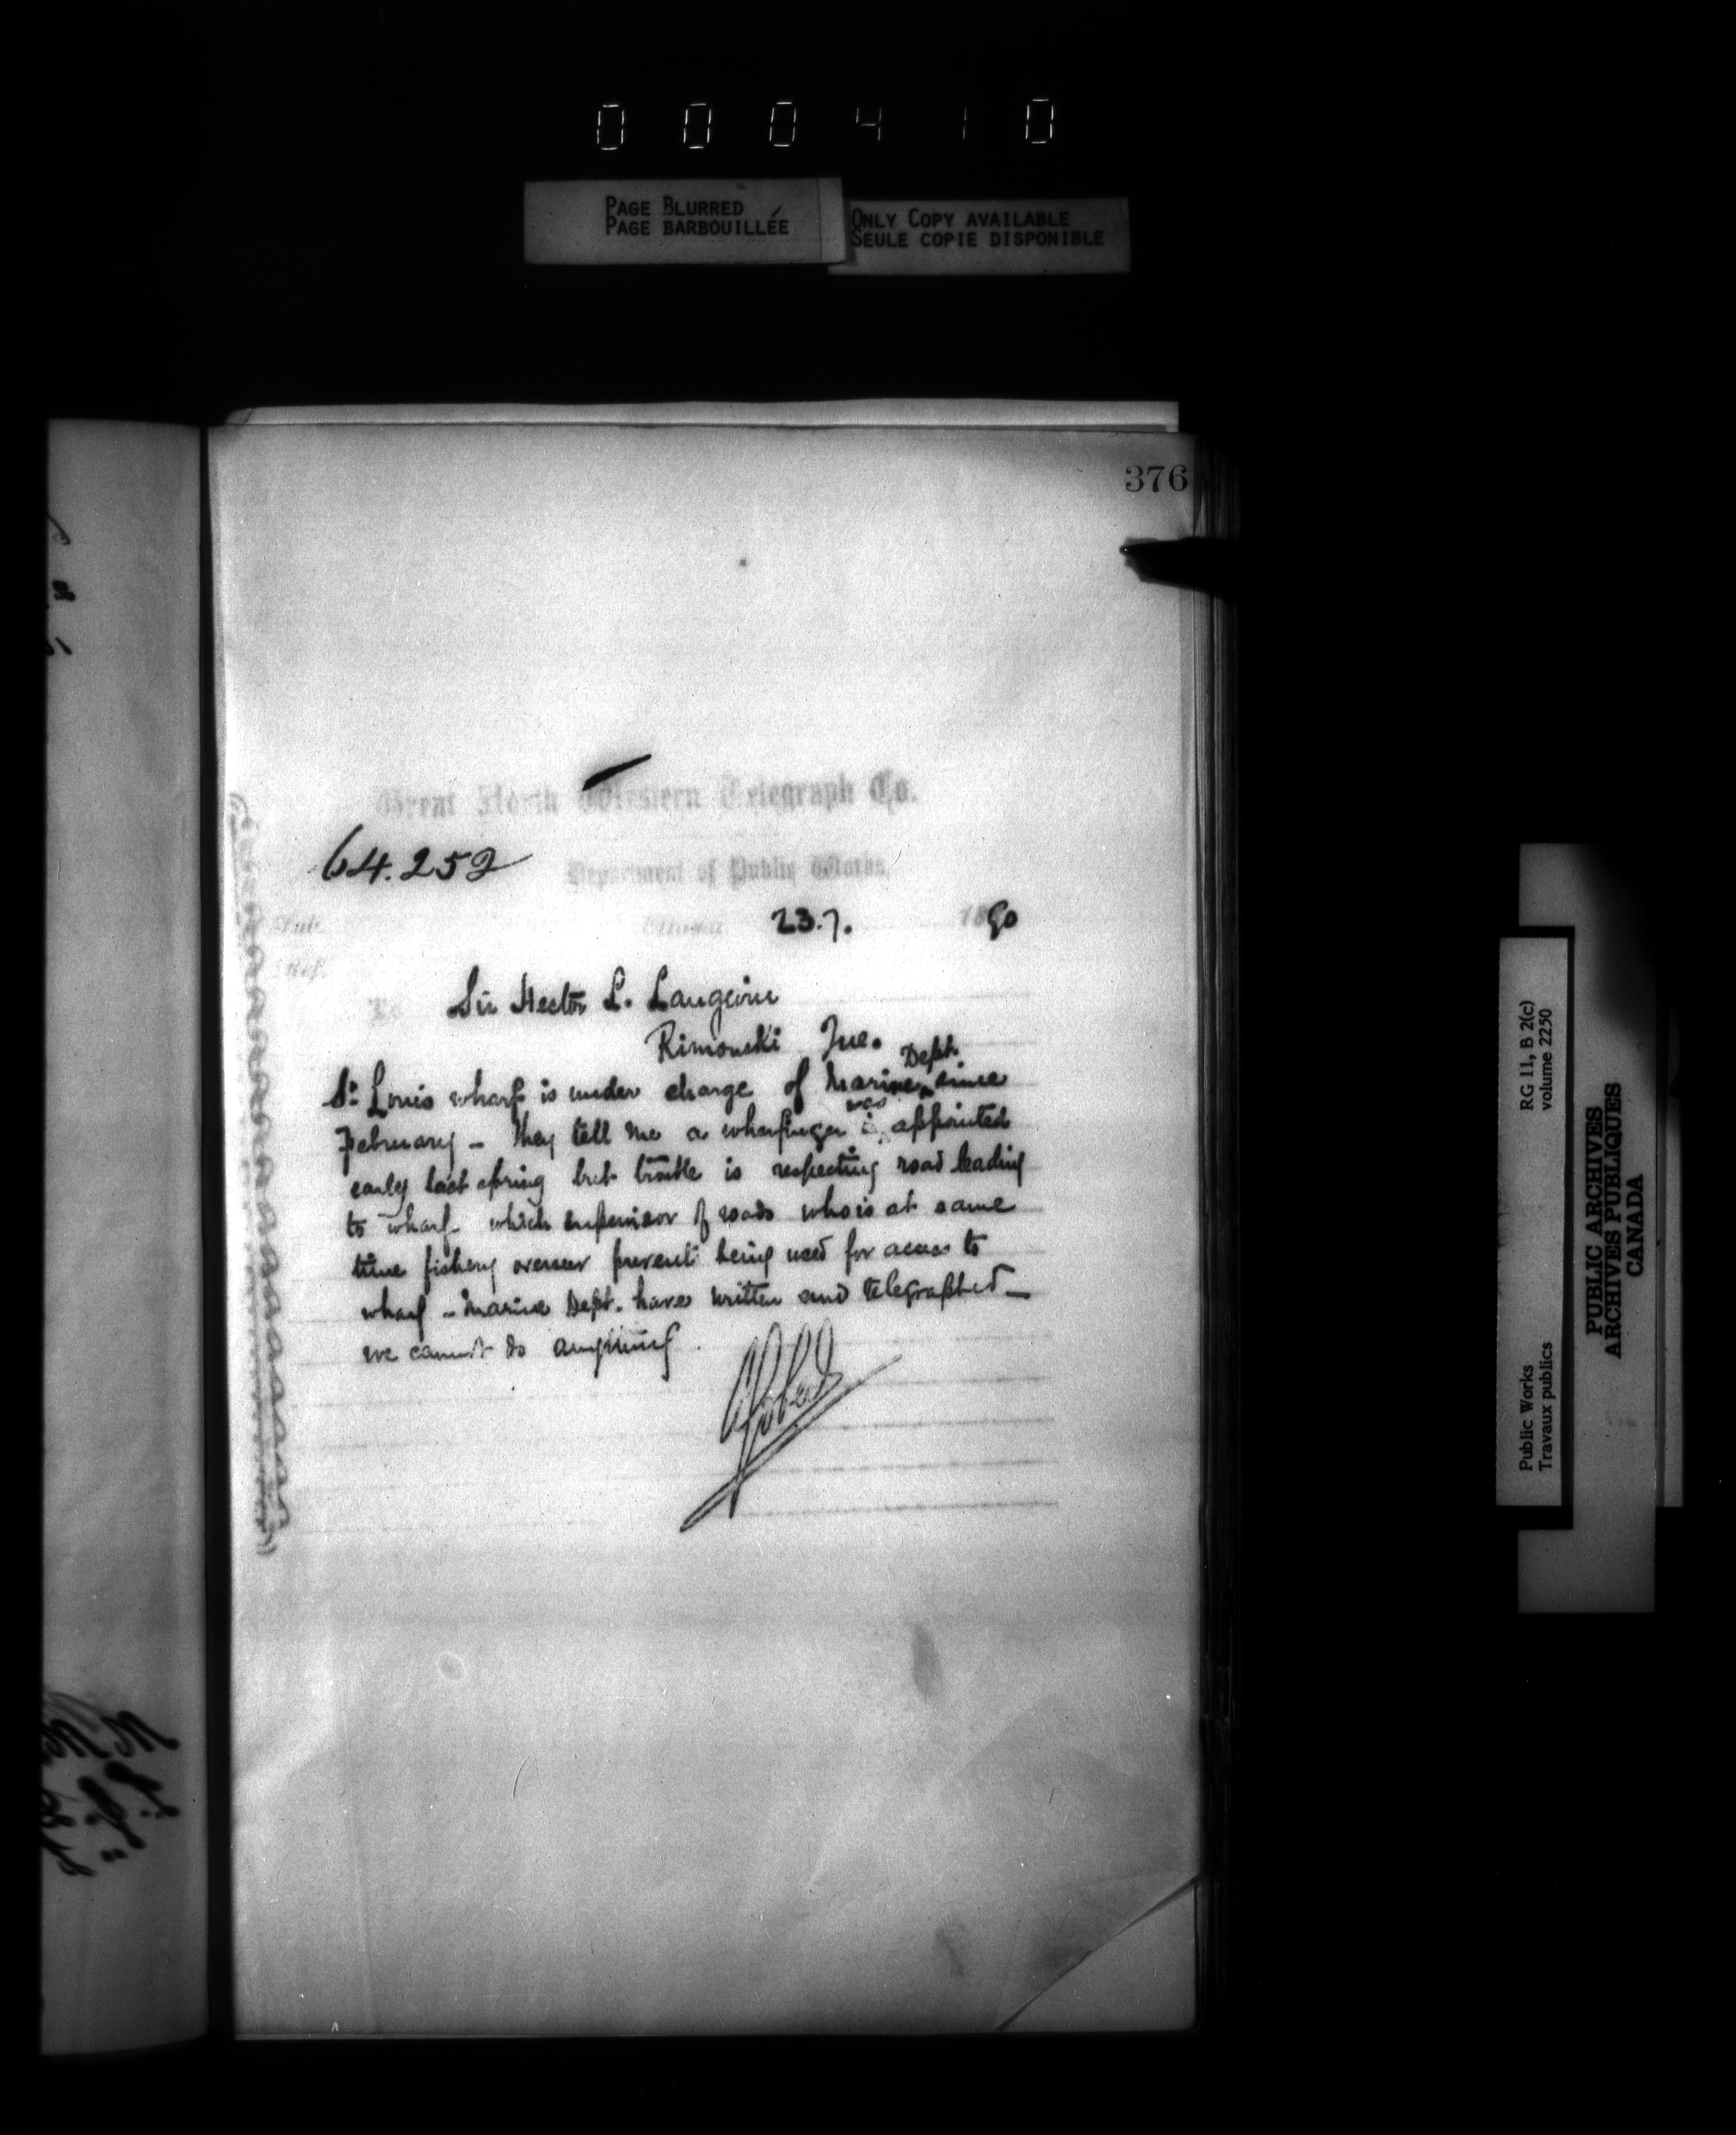 000410
PAGE BLURRED
PAGE BARBOUILLÉE
ONLY COPY AVAILABLE
SEULE COPIE DISPONIBLE
376
Great North Western Telegraph Co.
64.252
Department of Public Works,
Ottawa 23.7. 1890
Sub.
Ref.
To Sir Hector L. Langevin
Rimouski Que.
St Louis wharf is under charge of Marine Dept. since
February - They tell me a wharfinger was appointed
early last spring but trouble is respecting road leading
to wharf which supervisor of roads who is at same
time fishery overseer prevents being used for access to
wharf - Marine Dept. have written and telegraphed -
we cannot do anything.
Public Works
Travaux publics
RG 11, B 2(c)
volume 2250
PUBLIC ARCHIVES
ARCHIVES PUBLIQUES
CANADA